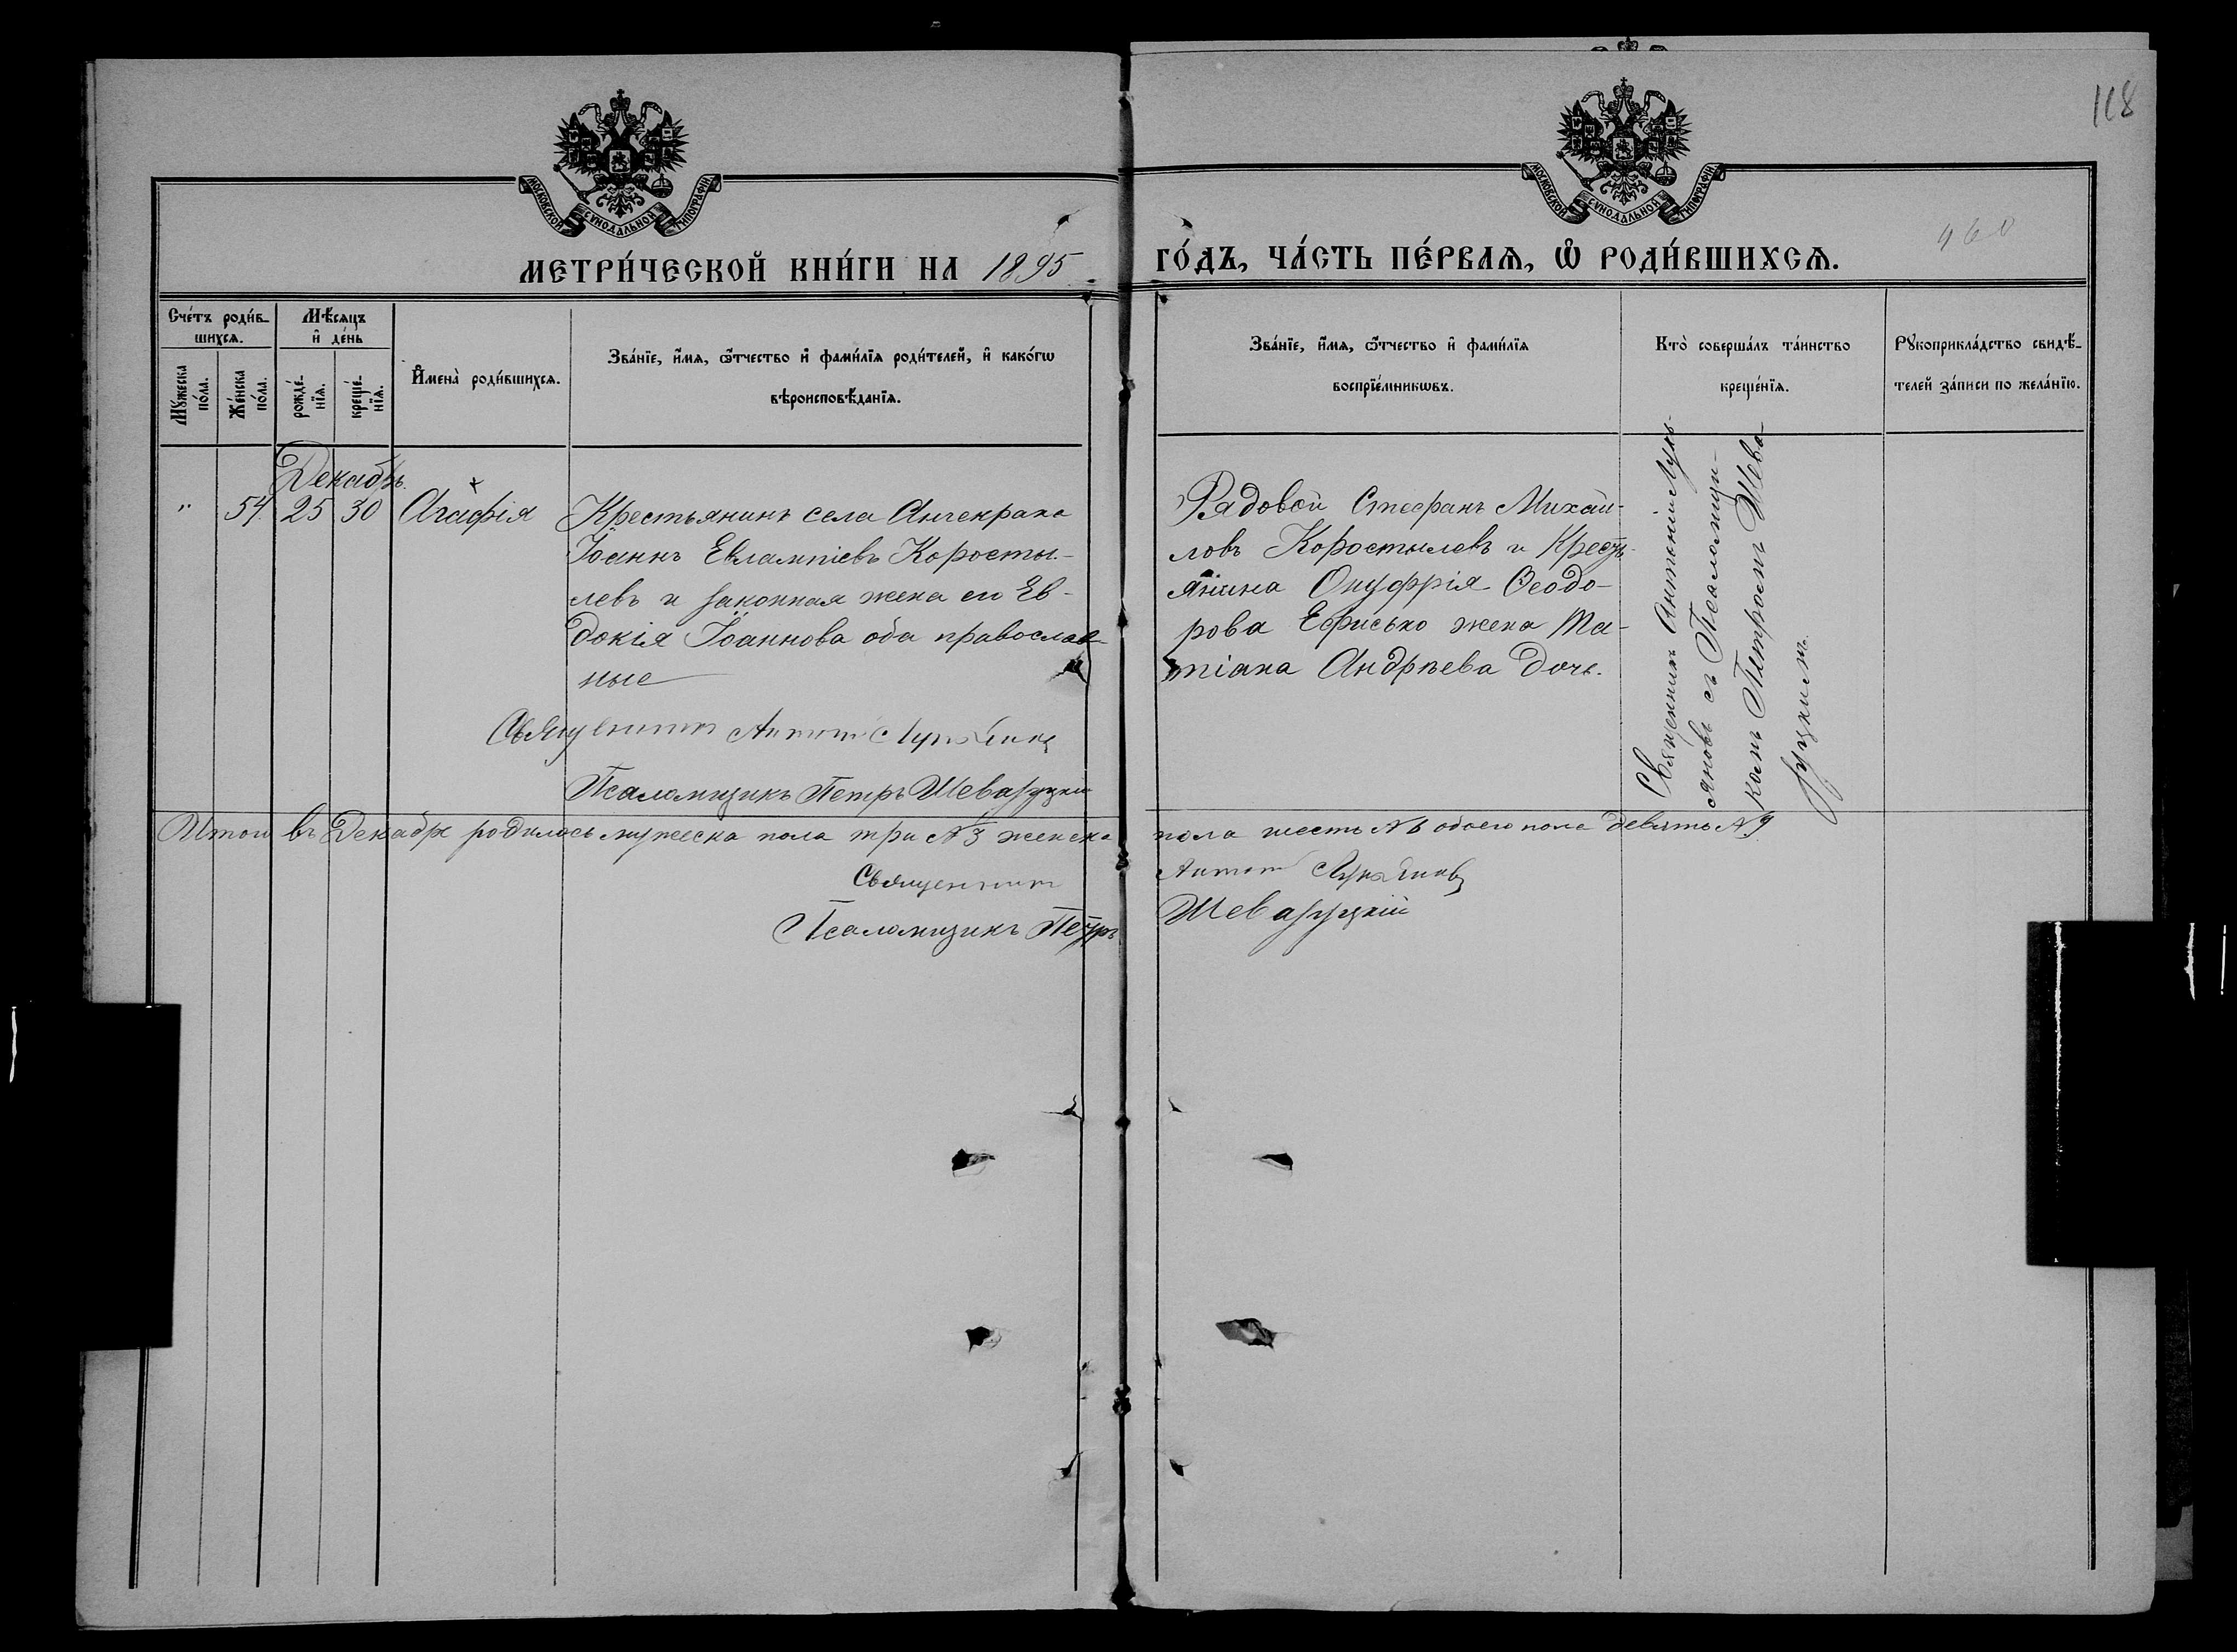 118
МОСКОВСКОЙ СѴНОДАЛЬНОЙ ТИПОГРАФІИ
МОСКОВСКОЙ СѴНОДАЛЬНОЙ ТИПОГРАФІИ
МЕТРИ́ЧЕСКОЙ КНИ́ГИ НА 1895
ГО́ДЪ, ЧА́СТЬ ПЕ́РВАѦ, Ѡ҆ РОДИ́ВШИХСѦ.
460
Сче́тъ роди́в-
шихсѧ.
Мꙋ́жеска
по́ла.
Же́нска
по́ла.
Мѣ́сѧцъ
и҆ де́нь
рожде́-
нїѧ.
креще́-
нїѧ.
И҆мена̀ роди́вшихсѧ.
Зва́нїе, и҆́мѧ, ѻ҆́тчество и҆ фами́лїѧ роди́телей, и҆ како́гѡ
вѣроисповѣ́данїѧ.
Зва́нїе, и҆́мѧ, ѻ҆́тчество и҆ фами́лїѧ
воспрїе́мникѡвъ.
Кто̀ соверша́лъ та́инство
креще́нїѧ.
Рꙋкоприкла́дство свидѣ́-
телей за́писи по жела́нїю.
Декабрь.
" 54. 25 30 Агафія
Крестьянинъ села Анчекрака
Іоаннъ Евлампіевъ Коросты-
левъ и законная жена его Ев-
докія Іоаннова оба православ
ные
Священникъ Антоній Лукьяновъ
Псаломщикъ Петръ Шевазуцкій
Рядовой Стефанъ Михай-
ловъ Коростылевъ и Кресть-
янина Онуфрія Ѳеодо-
рова Ефисько жена Та-
тіана Андрѣева дочь.
Священникъ Антоній Лукь-
яновъ съ Псаломщи-
комъ Петромъ Шева-
зуцкимъ.
Итого въ Декабрѣ родилось мужеска пола три №3 женска пола шесть №6 обоего пола девять №9
Священникъ Антоній Лукьяновъ
Псаломщикъ Петръ Шевазуцкій